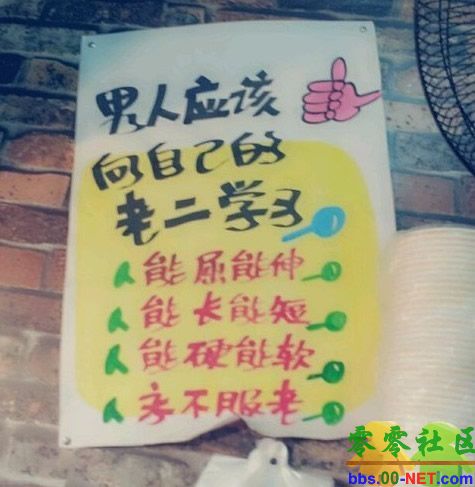 男人应该
向自己的
老二学习
能屈能伸
能长能短
能硬能软
永不服老
零零社区
bbs.00-NET.com